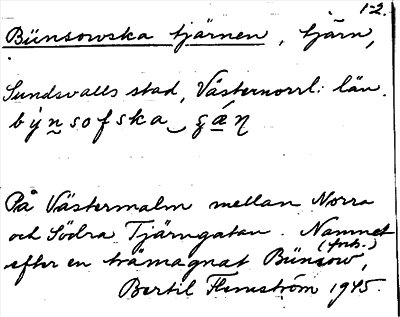 1-2.
Bünsowska tjärnen, tjärn,
Sundsvalls stad, Västernorrl: län.
på Västermalm mellan Norra
och Södra Tjärngatan. Namnet
(fnb.)
efter en trämagnat Bünsow,
Bertil Flemström 1945.